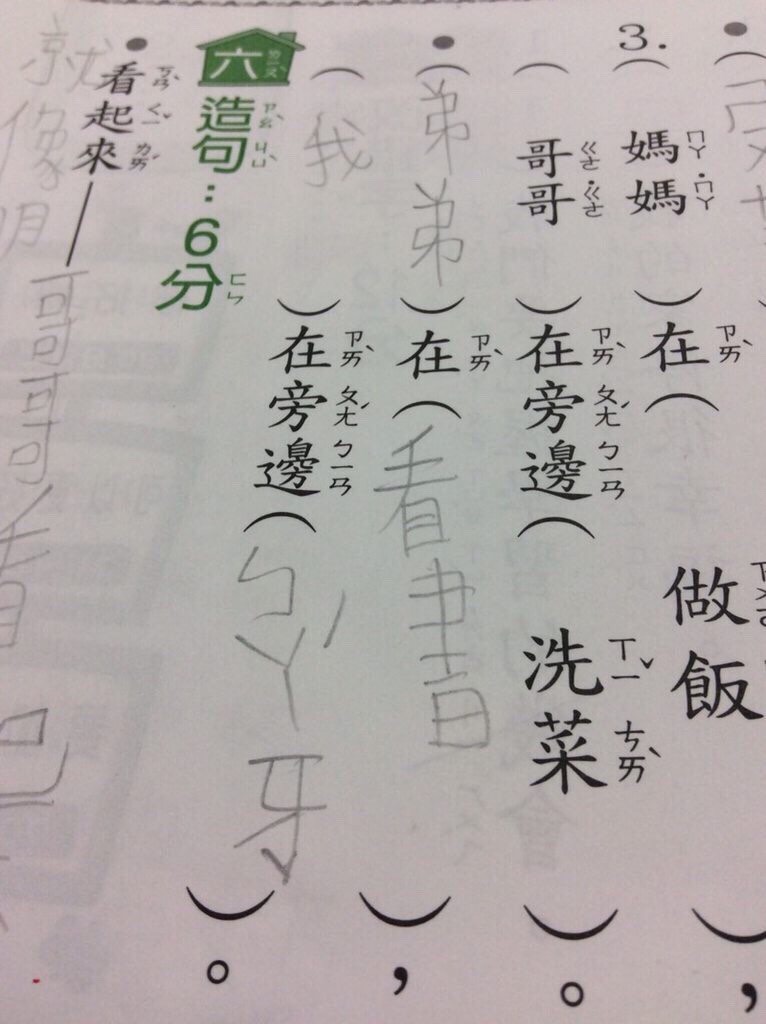 3.(媽媽)在(做飯),
(哥哥)在旁邊(洗菜)。
●(弟弟)在(看書),
(我)在旁邊(ㄅㄚˊ牙)。
六 造句:6分
●看起來——哥哥
就像明